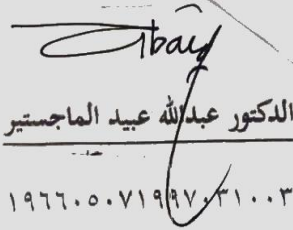 الدكتور عبدالله عبيد الماجستير
١٩٦٦٠٥٠٧١٩٩٧٠٣١٠٠٣